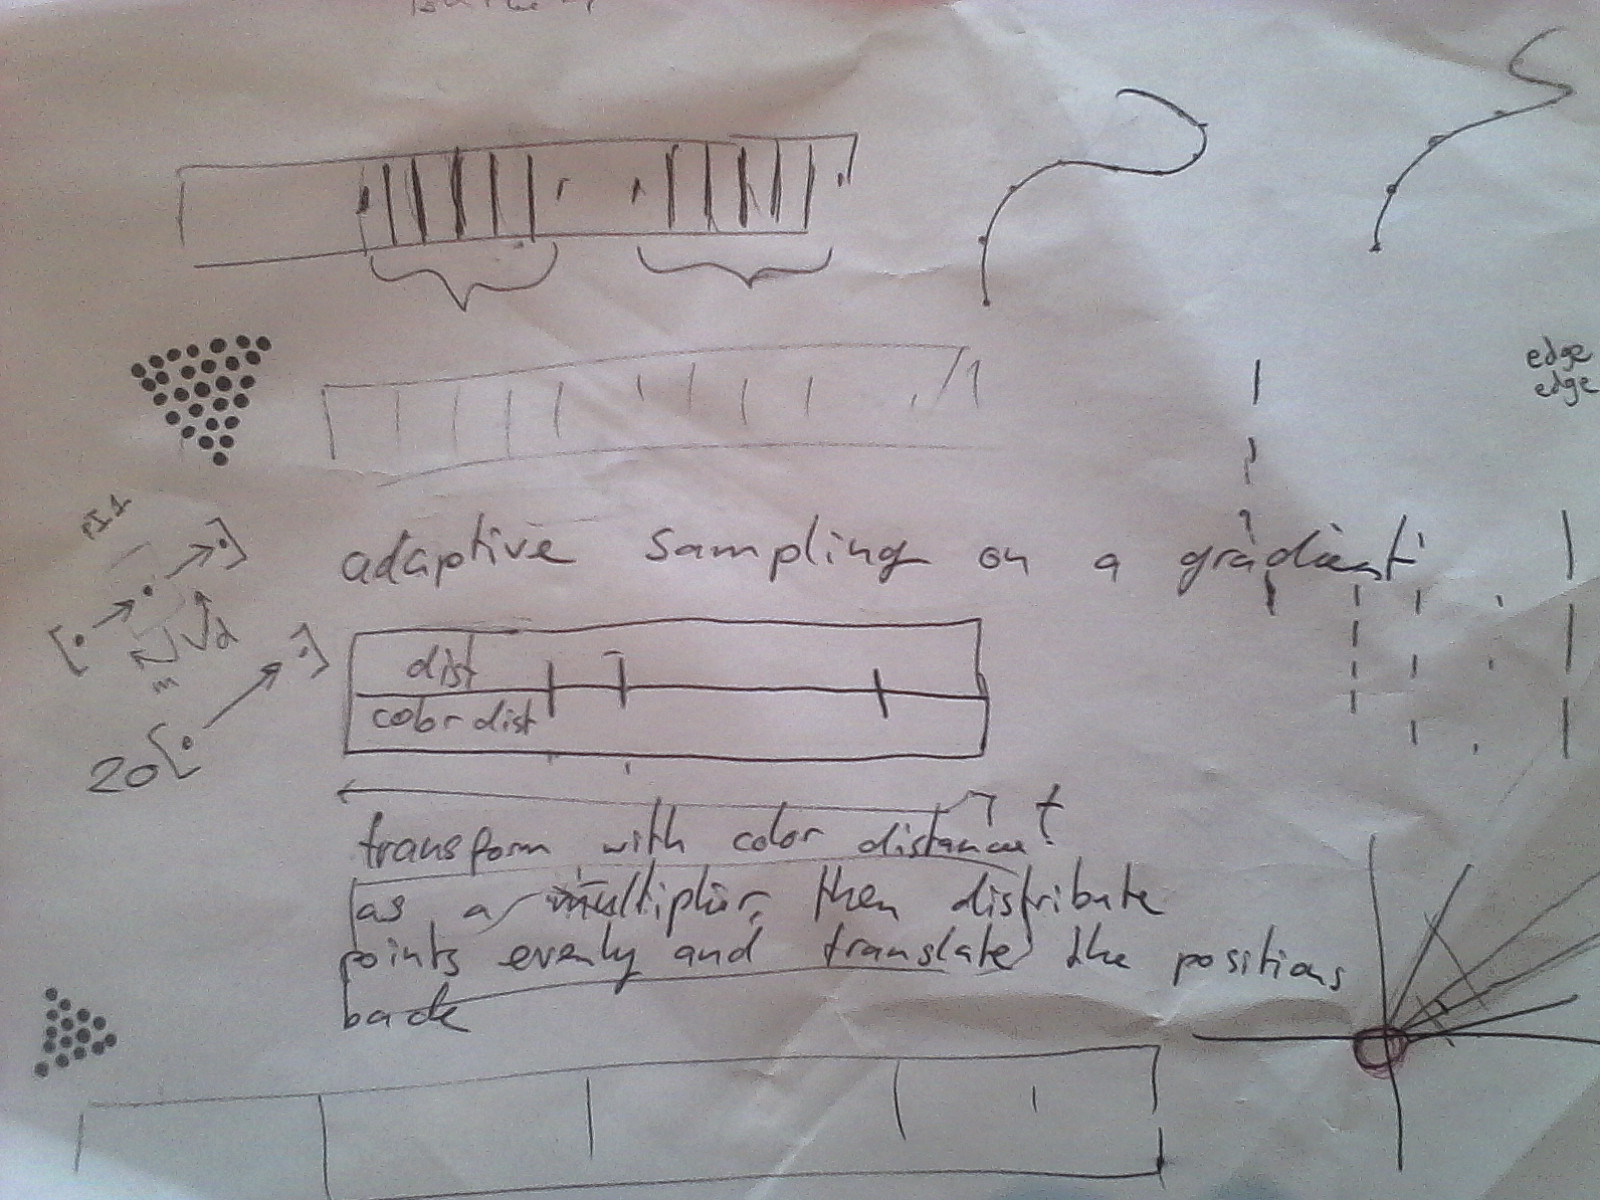 edge
edge
adaptive sampling on a gradient
dist
color dist
20
t
transform with color distance
as a multiplier, then distribute
points evenly and translate the positions
back